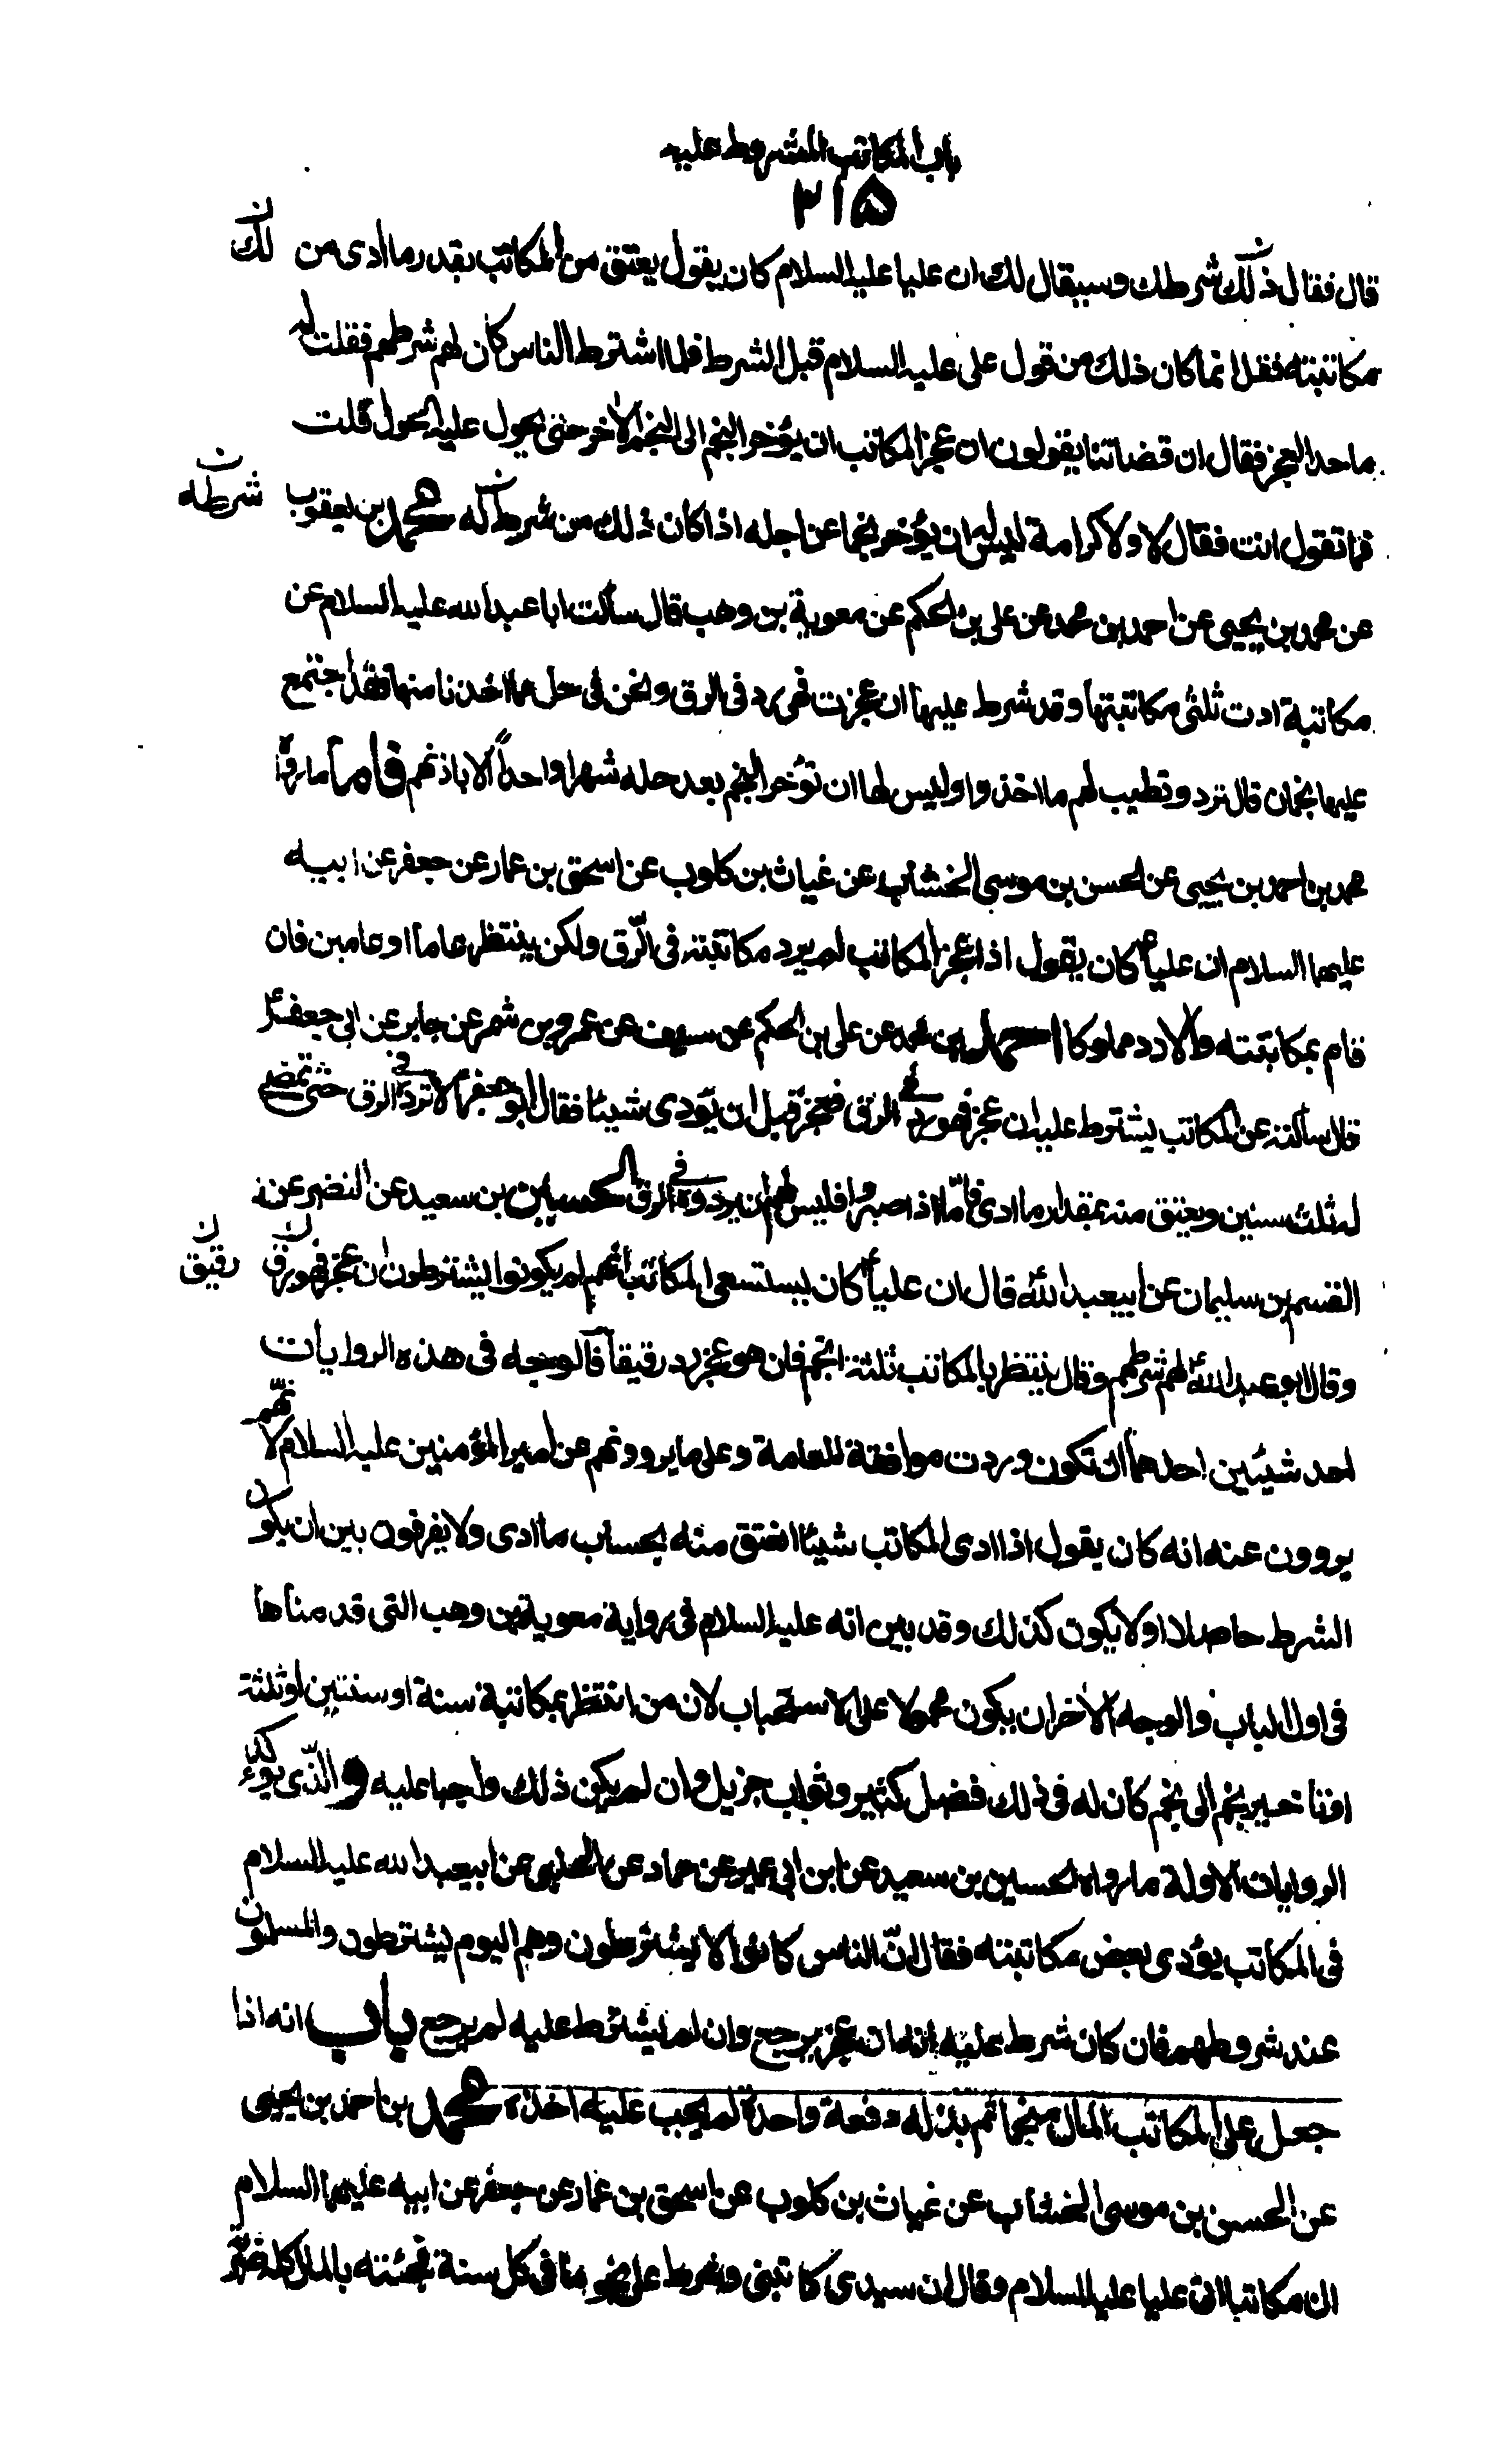 باب المكاتب المشروط عليه
٣١٥
قال فقال ذلك شرطك وسيقال لك ان عليا عليه السلام كان يقول يعتق من المكاتب بقدر ما ادى من
ن لك
مكاتبته فقل انما كان ذلك من قول على عليه السلام قبل الشرط فلما اشترط الناس كان لهم شرطهم فقلت له
ما حد العجز فقال ان قضاتنا يقولون ان عجز المكاتب ان يؤخر النجم الى النجم الاخر حتى يحول عليه الحول قلت
فما تقول انت فقال لا ولا كرامة ليس له ان يؤخر نجما عن اجله اذا كان ذلك من شرط له محمد بن يعقوب
ن شرطه
عن محمد بن يحيى عن احمد بن محمد عن على بن الحكم عن معوية بن وهب قال سألت ابا عبد الله عليه السلام عن
مكاتبة ادت ثلثى مكاتبتها وقد شرط عليها ان عجزت فهى رد فى الرق ونحن فى حل مما اخذنا منها فقد اجتمع
عليها نجمان قال ترد وتطيب لهم ما اخذوا وليس لها ان تؤخر النجم بعد حله شهرا واحدا الا باذنهم فاما ما رواه
محمد بن احمد بن يحيى عن الحسن بن موسى الخشاب عن غياث بن كلوب عن اسحق بن عمار عن جعفر عن ابيه
عليهما السلام ان عليا ع كان يقول اذا عجز المكاتب لم يرد مكاتبته فى الرق ولكن ينتظر عاما او عامين فان
قام بمكاتبته والا رد مملوكا احمد بن محمد عن على بن الحكم عن سيف عن عمرو بن شمر عن جابر عن ابى جعفر ع
قال سألته عن المكاتب يشترط عليه ان عجز فهو رد فى الرق فعجز قبل ان يؤدى شيئا فقال ابو جعفر ع لا ترده فى الرق حتى تمضى
له ثلث سنين ويعتق منه بمقدار ما ادى فاما اذا صبروا فليس لهم ان يردوه فى الرق الحسين بن سعيد عن النضر عن
القسم بن سليمان عن ابيعبد الله ع قال ان عليا ع كان يستسعى المكاتب انهم لم يكونوا يشترطون ان عجز فهو رق
ن رقيق
وقال ابو عبد الله ع لهم شرطهم وقال ينتظر بالمكاتب ثلثة انجم فان هو عجز رد رقيقا فالوجه فى هذه الروايات
احد شيئين احدهما ان تكون وردت موافقة للعامة وعلى ما يروونهم عن امير المؤمنين عليه السلام لانهم
يروون عنه انه كان يقول اذا ادى المكاتب شيئا انعتق منه بحساب ما ادى ولا يفرقون بين ان يكون
الشرط حاصلا او لا يكون كذلك وقد بين انه عليه السلام فى رواية معوية بن وهب التى قدمناها
فى اول الباب والوجه الاخر ان يكون محمولا على الاستحباب لان من انتظر بمكاتبة سنة او سنتين او ثلثة
او تأخير نجم الى نجم كان له فى ذلك فضل كثير وثواب جزيل وان لم يكن ذلك واجبا عليه والذى يؤكد
الروايات الاولة ما رواه الحسين بن سعيد عن ابن ابى عمير عن حماد عن الحلبى عن ابيعبد الله عليه السلام
فى المكاتب يؤدى بعض مكاتبته فقال ان الناس كانوا لا يشترطون وهم اليوم يشترطون والمسلمون
عند شروطهم فان كان شرط عليه انه ان عجز يرجع وان لم يشترط عليه لم يرجع باب انه اذا
جعل على المكاتب المال منجما ثم بذله دفعة واحدة لم يجب عليه اخذه محمد بن احمد بن يحيى
عن الحسن بن موسى الخشاب عن غياث بن كلوب عن اسحق بن عمار عن جعفر عن ابيه عليهما السلام
ان مكاتبا اتى عليا عليه السلام وقال ان سيدى كاتبنى وشرط على نجوما فى كل سنة فجئته بالمال كله ضربة